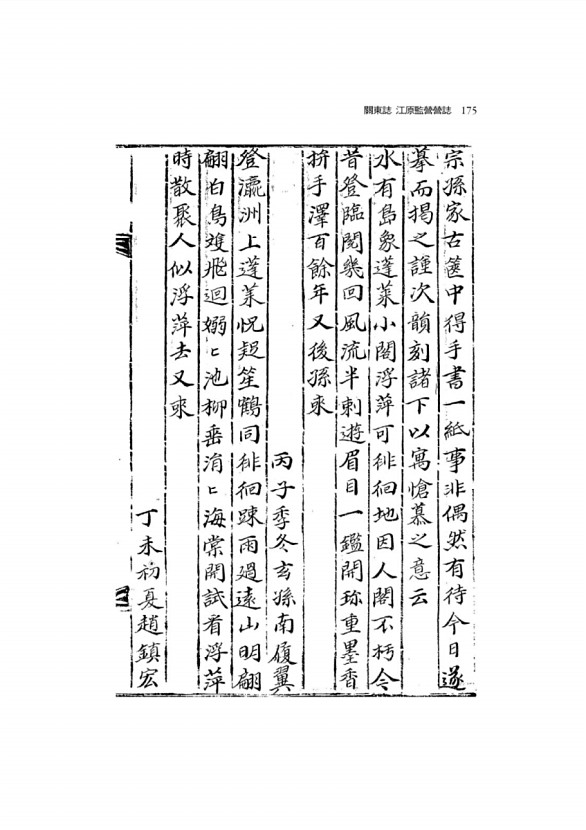 關東誌 江原監營營誌 175
宗孫家古篋中得手書一紙事非偶然有待今日遂
摹而揭之謹次韻刻諸下以寓愴慕之意云
水有島象蓬萊小閣浮萍可徘徊地因人閣不朽今
昔登臨閱幾回風流半刺遊眉目一鑑開珎重墨香
手澤百餘年又後孫來
丙子季冬玄孫南履翼
登瀛洲上蓬萊怳疑笙鶴同徘徊踈雨過遠山明翩
翩白鳥雙飛迴嫋〻池柳垂涓〻海棠開試看浮萍
時散聚人似浮萍去又來
丁未初夏趙鎮宏